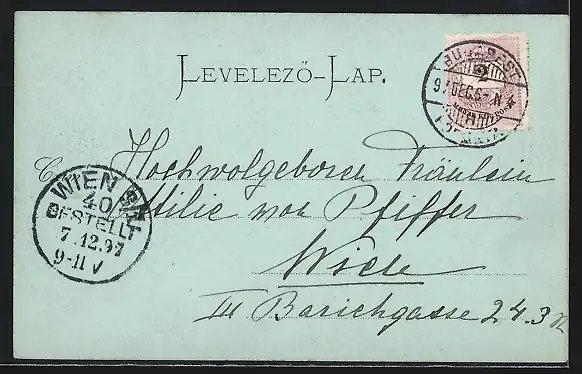 LEVELEZŐ-LAP.
BUDAPEST
2
97 DEC 6 N
Hochwolgeboren Fräulein
Ottilie von Pfeiffer
Wien
III Barichgasse 24. 3
WIEN
40
BESTELLT
7.12.97
9-11 V